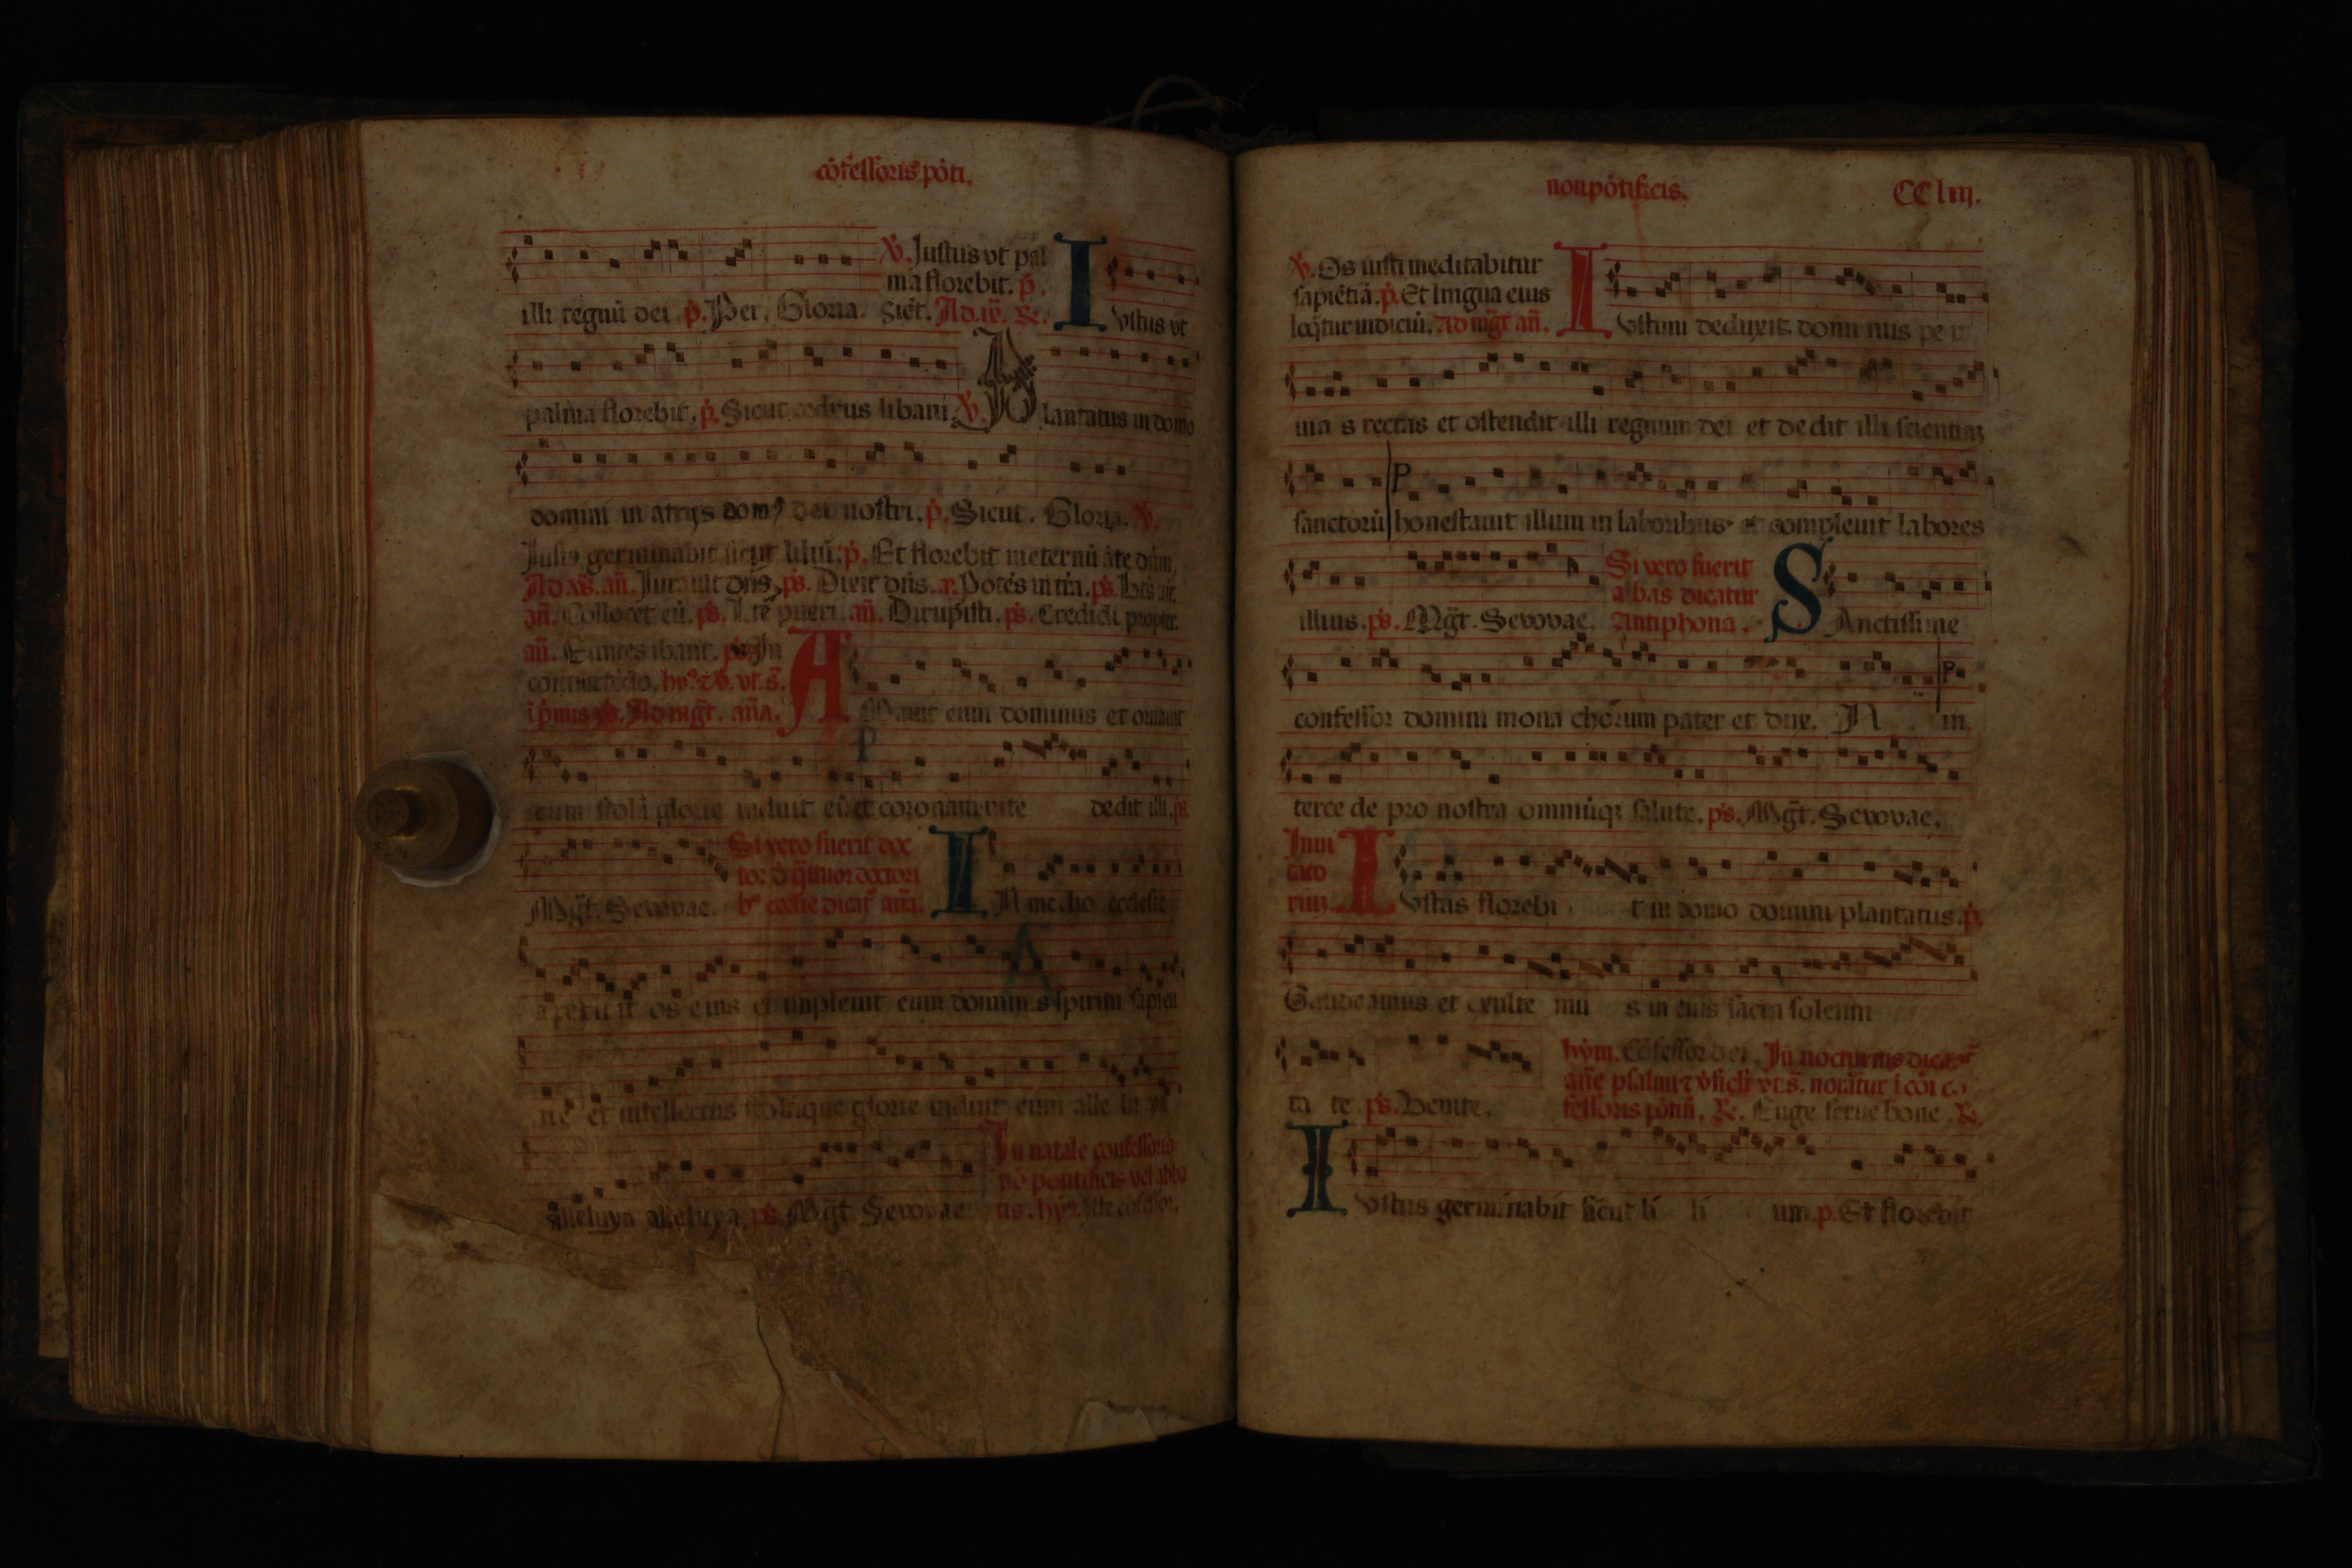 cõfessoris põti.
℣. Justus vt pal
ma florebit. p̃.
illi regnũ dei. p̃. Per. Gloria. Sicut. Ad. ix. R.
Iustus vt
palma florebit. p̃. Sicut cedrus libani. ℣. Plantatus in domo
domini in atrijs domꝰ dei nostri. p̃. Sicut. Gloria. ℣.
Justꝰ germinabit sicut liliũ. p̃. Et florebit in eternũ ãte dñm.
Ad vs̃. añ. Jurauit dñs. ps̃. Dixit dñs. añ. Potẽs in tra. ps̃. Btũs uir.
añ. Collocet eũ. ps̃. L tẽ pueri. añ. Dirupisti. ps̃. Credidi propter.
añ. Euntes ibant. ps̃. In
conuertẽdo. hyꝰ. ⁊ ℣. vt. s̃.
Ad mgt̃. aña.
AMauit eum dominus et ornauit
eum stolã glorie induit eũ et coronam vite dedit illi. ps̃.
Mgt̃. Sevovae.
Si vero fuerit doc
tor d̃ q̃ttuor doctori
bꝰ ecclie dicat̃ aña.
IN medio ecclesie
aperuit os eius et impleuit eum dominus spiritu sapien
tie et intellectus stolamque glorie induit eum alle lu ya
alleluya alleluya. ps̃. Mgt̃. Sevovae.
In natale confessoris
nõ pontificis vel abba
tis. hyꝰ. Iste cõfessor.
non põtificis. CC liij.
℣. Os iusti meditabitur
sapiẽtiã. p̃. Et lingua eius
loq̃tur iudiciũ. Ad mgt̃ añ.
Iustum deduxit domi nus pe r
uia s rectas et ostendit illi regnum dei et de dit illi scientiaꝫ
sanctorũ honestauit illum in laboribus et compleuit labores
illius. ps̃. Mgt̃. Sevovae.
Si vero fuerit
abbas dicatur
Antiphona.
SAnctissime
confessor domini mona chorum pater et dux. N in
terce de pro nostra omniũqꝫ salute. ps̃. Mgt̃. Sevovae.
Inui
tato
riuꝫ.
Iustus florebi t in domo domini plantatus. p̃.
Gaudeamus et exulte mu s in eius sacra solenni
ta te ps̃. Venite.
hym. Cõfessor dei. In nocturnis dicant̃
añe psalmi ⁊ v̓sicli vt. s̃. notãtur ĩ cõi cõ
fessoris põtifi. R. Euge serue bone. R.
Iustus germinabit sicut li li um. p. Et florebit